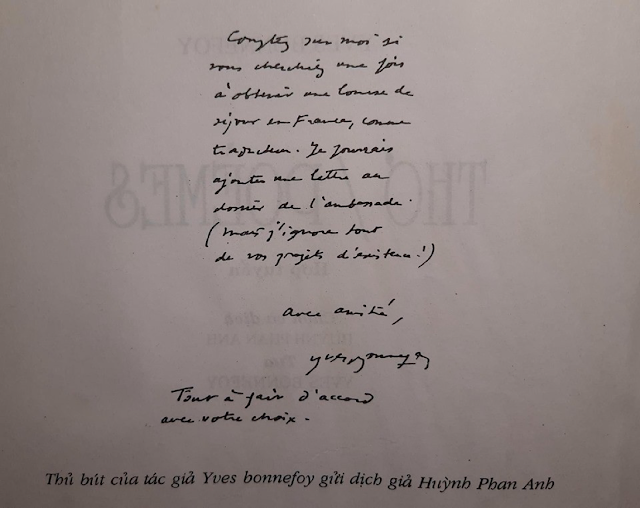 Comptez sur moi si
vous cherchiez une fois
à obtenir une bourse de
séjour en France, comme
traducteur. Je pourrais
ajouter une lettre au
dossier de l'ambassade.
(mais j'ignore tout
de vos projets d'existence!)
avec amitié,
Yves Bonnefoy
Tout à fait d'accord
avec votre choix.
Thủ bút của tác giả Yves bonnefoy gửi dịch giả Huỳnh Phan Anh